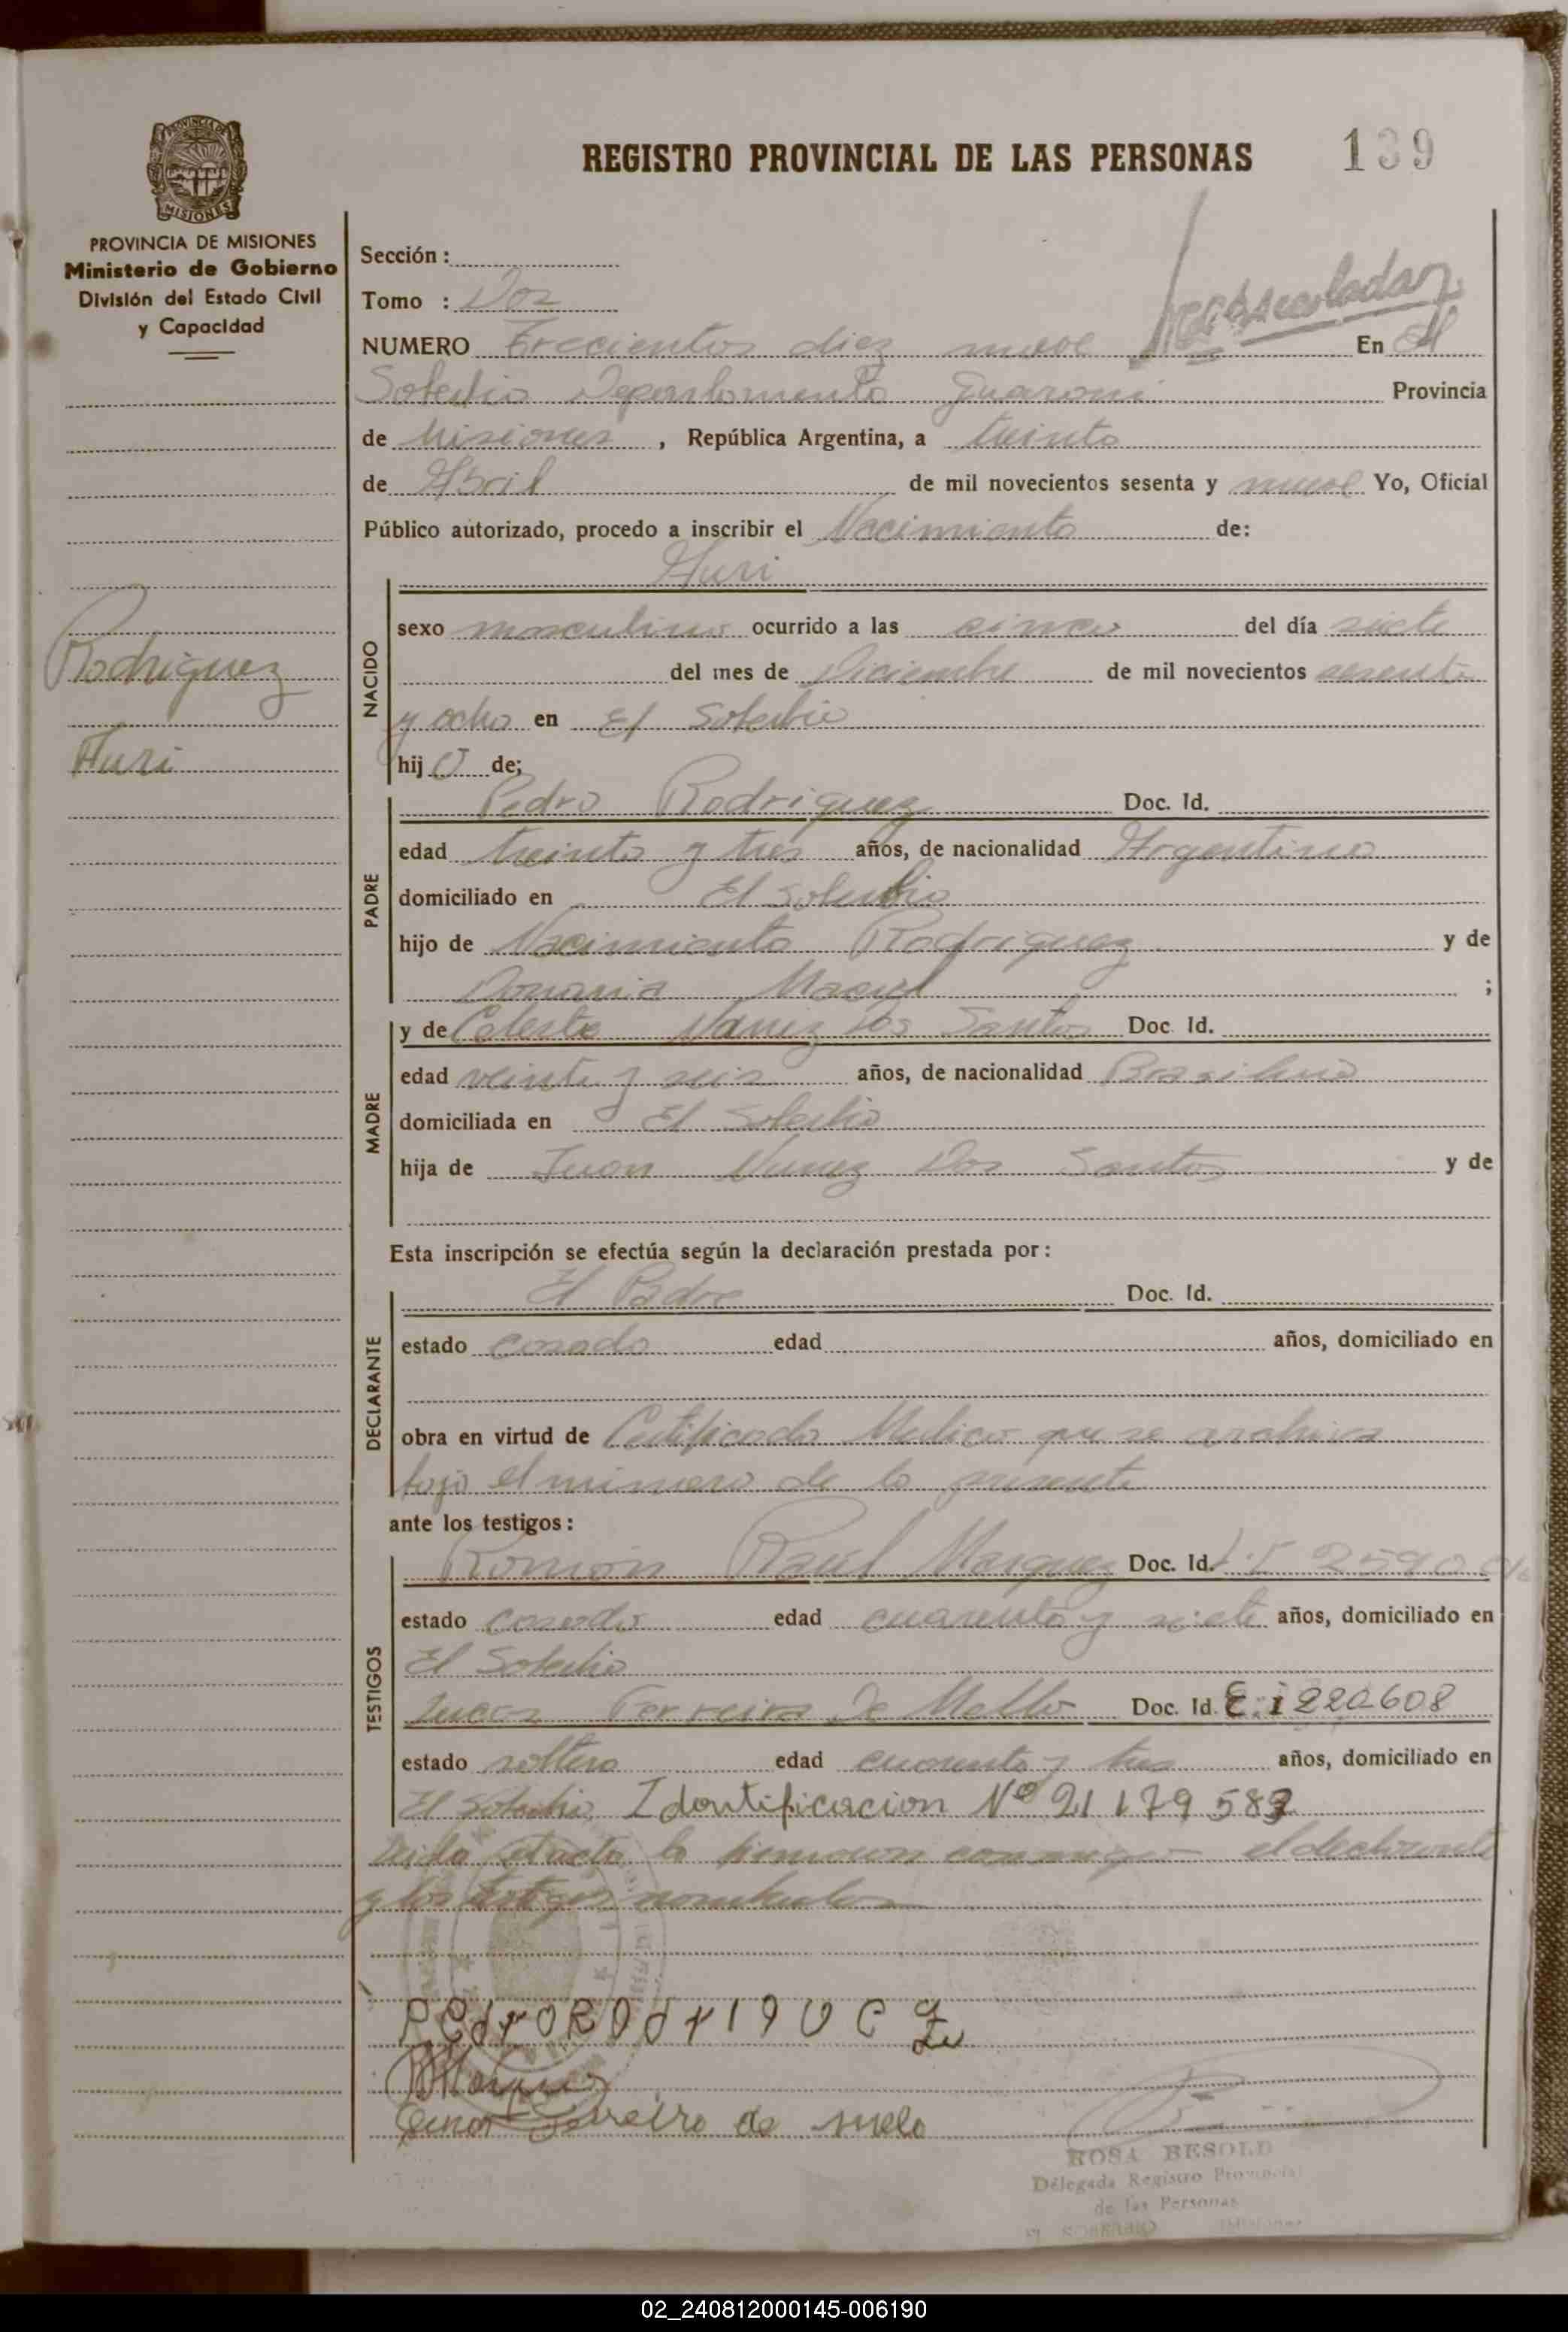 REGISTRO PROVINCIAL DE LAS PERSONAS 139
PROVINCIA DE MISIONES
PROVINCIA DE MISIONES
Ministerio de Gobierno
División del Estado Civil
y Capacidad
Rodriguez
Sección :
Tomo : Dos
NUMERO Trecientos diez nueve En El
Soberbio Departamento Guarani Provincia
de Misiones , República Argentina, a treinta
de Abril de mil novecientos sesenta y nueve Yo, Oficial
Público autorizado, procedo a inscribir el Nacimiento de:
NACIDO
sexo masculino ocurrido a las cinco del día siete
del mes de Diciembre de mil novecientos sesenta
y ocho en El Soberbio
hij o de;
PADRE
Pedro Rodriguez Doc. Id.
edad treinta y tres años, de nacionalidad Argentino
domiciliado en El Soberbio
hijo de Nacimiento Rodriguez y de
Maciel ;
MADRE
y de Celeste Nunez Dos Santos Doc. Id.
edad veinte y seis años, de nacionalidad Brasilera
domiciliada en El Soberbio
hija de Juan Nunez Dos Santos y de
Esta inscripción se efectúa según la declaración prestada por :
DECLARANTE
El Padre Doc. Id.
estado casado edad años, domiciliado en
obra en virtud de Certificado Medico que se archiva
bajo el numero de la presente
ante los testigos :
TESTIGOS
Román Raul Marquez Doc. Id.
estado casado edad cuarenta y siete años, domiciliado en
El Soberbio
Ferreira De Mello Doc. Id. C. i 220608
estado soltero edad cuarenta y tres años, domiciliado en
El Soberbio Identificacion Nº 21 179 583
Leida el acta la firmaron conmigo el declarante
y los testigos nombrados
PEdrO ROdrIgUEZ
Ferreira de melo
ROSA BESOLD
Delegada Registro Provincial
de las Personas
EL SOBERBIO Misiones
02_240812000145-006190